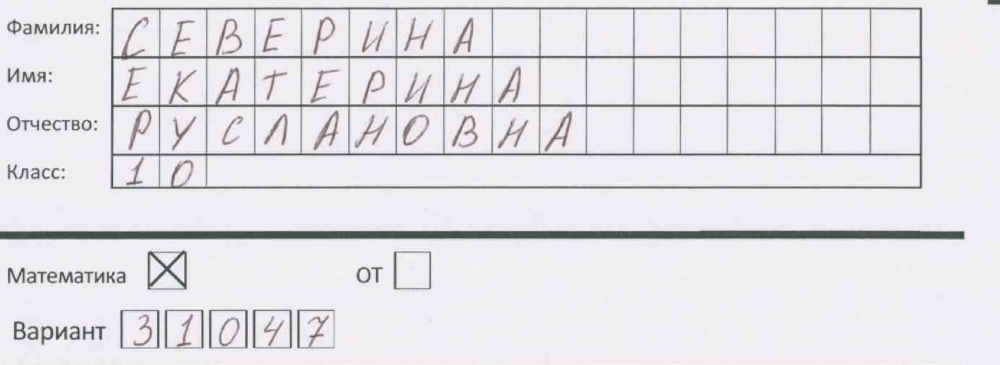 Фамилия: СЕВЕРИНА
Имя: ЕКАТЕРИНА
Отчество: РУСЛАНОВНА
Класс: 10
Математика ☒ ОТ ☐
Вариант 31047